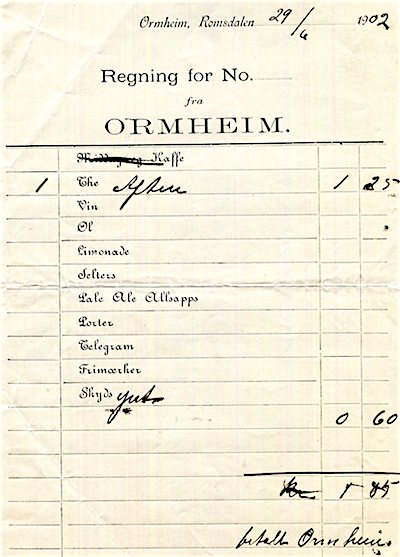 Ormheim, Romsdalen 29/6 1902
Regning for No.
fra
ORMHEIM.
Middag og Kaffe
1 The Aften 1 25
Vin
Øl
Limonade
Selters
Pale Ale Allsopps
Porter
Telegram
Frimærker
Skyds
0 60
Kr 1 85
betalt Ormheim.